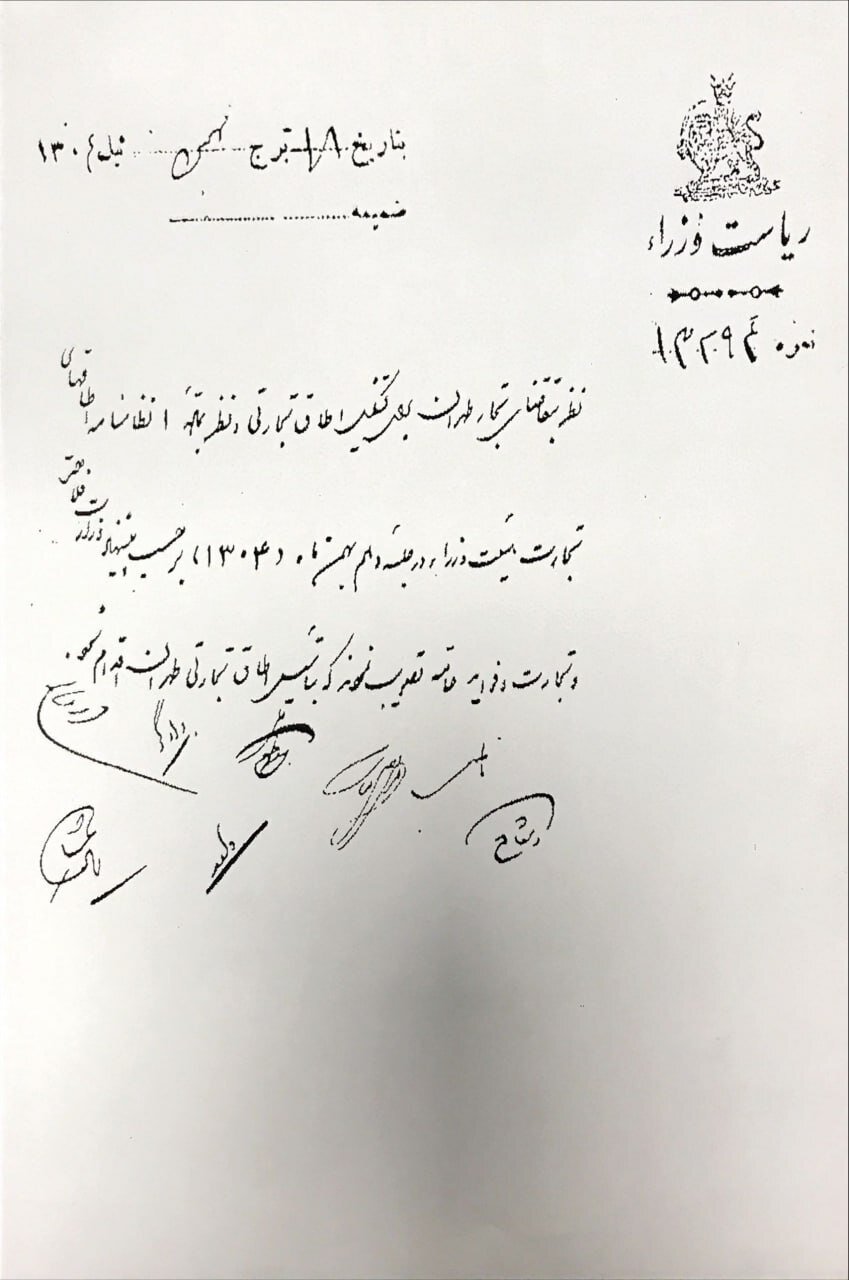 ریاست وزراء
نمره ۱۳۲۹۴
بتاریخ ۱۸ برج بهمن ئیل ۱۳۰۴
ضمیمه
نظر بتقاضای تجار طهران برای تشکیل اطاق تجارتی و نظر بماده ۱ نظامنامه اطاقهای
تجارت هیئت وزراء در جلسه دهم بهمن ماه (۱۳۰۴) بر حسب پیشنهاد وزارت فلاحت
و تجارت و فوائد عامه تصویب نمودند که بتأسیس اطاق تجارتی طهران اقدام شود.